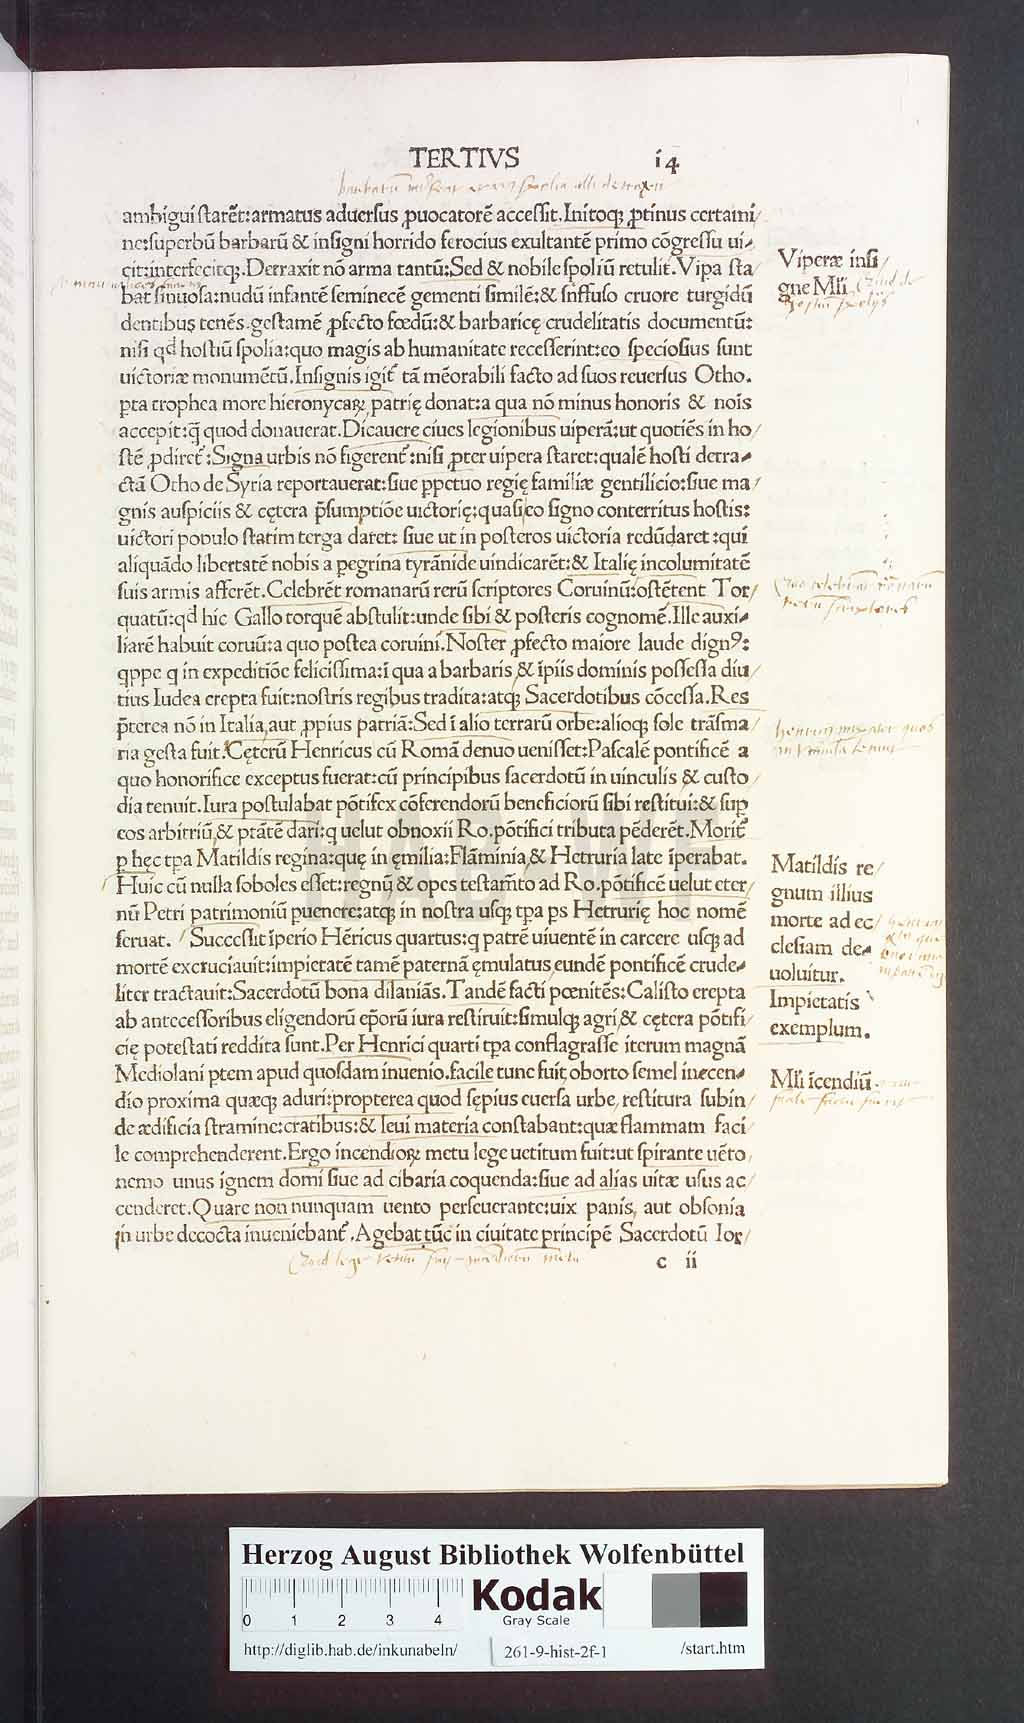 TERTIVS 14
ambigui starēt:armatus aduersus ꝓuocatorē accessit.Initoqꝫ ꝓtinus certami/
ne:superbū barbarū & insigni horrido ferocius exultantē primo cōgressu ui-
cit:interfecitqꝫ.Detraxit nō arma tantū:Sed & nobile spoliū retulit.Vipa sta/
bat sinuosa:nudū infantē seminecē gementi similē:& suffuso cruore turgidū
dentibus tenēs.gestamē ꝓfecto fœdū:& barbaricę crudelitatis documentū:
nisi qd hostiū spolia:quo magis ab humanitate recesserint:eo speciosius sunt
uictoriæ monumētū.Insignis igit̃ tā mēorabili facto ad suos reuersus Otho.
ꝑta trophea more hieronycaꝝ patrię donat:a qua nō minus honoris & nois
accepit:q̄ quod donauerat.Dicauere ciues legionibus uiperā:ut quotiēs in ho/
stē ꝓdiret̃:Signa urbis nō figerent̃:nisi ꝓter uipera staret:qualē hosti detra-
ctā Otho de Syria reportauerat:siue ꝑpetuo regię familiæ gentilicio:siue ma/
gnis auspiciis & cętera p̄sumptiōe uictorię:quasi eo signo conterritus hostis:
uictori populo statim terga daret: siue ut in posteros uictoria redūdaret :qui
aliquādo libertatē nobis a pegrina tyrānide uindicarēt:& Italię incolumitatē
suis armis afferēt.Celebrēt romanarū rerū scriptores Coruinū:ostētent Tor/
quatū:qd hic Gallo torquē abstulit:unde sibi & posteris cognomē.Ille auxi-
liarē habuit coruū:a quo postea coruini.Noster ꝓfecto maiore laude dignꝰ:
qppe q in expeditiōe felicissima:ī qua a barbaris & īpiis dominis possessa diu/
tius Iudea erepta fuit:nostris regibus tradita:atqꝫ Sacerdotibus cōcessa.Res
p̄terea nō in Italia,aut ꝓpius patriā:Sed ī alio terrarū orbe:alioqꝫ sole trāsma/
ria gesta fuit.Cęterū Henricus cū Romā denuo uenisset:Pascalē pontificē a
quo honorifice exceptus fuerat:cū principibus sacerdotū in uinculis & custo/
dia tenuit.Iura postulabat pōtifex cōferendorū beneficiorū sibi restitui:& sup
eos arbitriū,& p̄tātē dari:q uelut obnoxii Ro.pōtifici tributa pēderēt.Morit̃
ꝑ hęc tpa Matildis regina:quę in ęmilia:Flāminia,& Hetruria late īperabat.
Huic cū nulla soboles esset:regnū & opes testam̄to ad Ro.pōtificē uelut eter/
nū Petri patrimoniū puenere:atqꝫ in nostra usqꝫ tpa ps Hetrurię hoc nomē
seruat. Successit īperio Hēricus quartus:q patrē uiuentē in carcere usqꝫ ad
mortē excruciauit:impietatē tamē paternā ęmulatus,eundē pontificē crude-
liter tractauit:Sacerdotū bona dilaniās.Tandē facti pœnitēs:Calisto erepta
ab antecessoribus eligendorū ep̄orū iura restituit:simulqꝫ agri,& cętera pōtifi/
cię potestati reddita sunt.Per Henrici quarti tpa conflagrasse iterum magnā
Mediolani ptem apud quosdam inuenio.facile tunc fuit oborto semel incen-
dio proxima quæqꝫ aduri:propterea quod sępius euersa urbe,restitura subin/
de ædificia stramine:cratibus:& leui materia constabant:quæ flammam faci/
le comprehenderent.Ergo incendioꝝ metu lege uetitum fuit:ut spirante uēto,
nemo unus ignem domi siue ad cibaria coquenda:siue ad alias uitæ usus ac/
cenderet.Quare non nunquam uento perseuerante:uix panis, aut obsonia
in urbe decocta inueniebant̃.Agebat tūc in ciuitate principē Sacerdotū Ior/
c ii
Viperæ insi/
gne Mli
Matildis re/
gnum illius
morte ad ec/
clesiam de-
uoluitur.
Impietatis
exemplum.
Mli īcendiū
HAB WF
Herzog August Bibliothek Wolfenbüttel
0 1 2 3 4
Kodak
Gray Scale
http://diglib.hab.de/inkunabeln/ 261-9-hist-2f-1 /start.htm